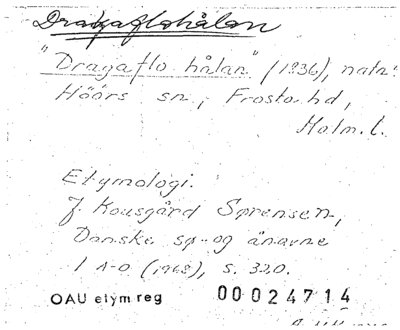 Dragaflohålan
"Dragaflo hålan" (1836), natn.
Höörs sn, Frosta hd,
Malm. l.
Etymologi.
J. Kousgård Sørensen,
Danske sø- og ånavne
1 A-D (1968), s. 320.
OAU etym reg 00024714